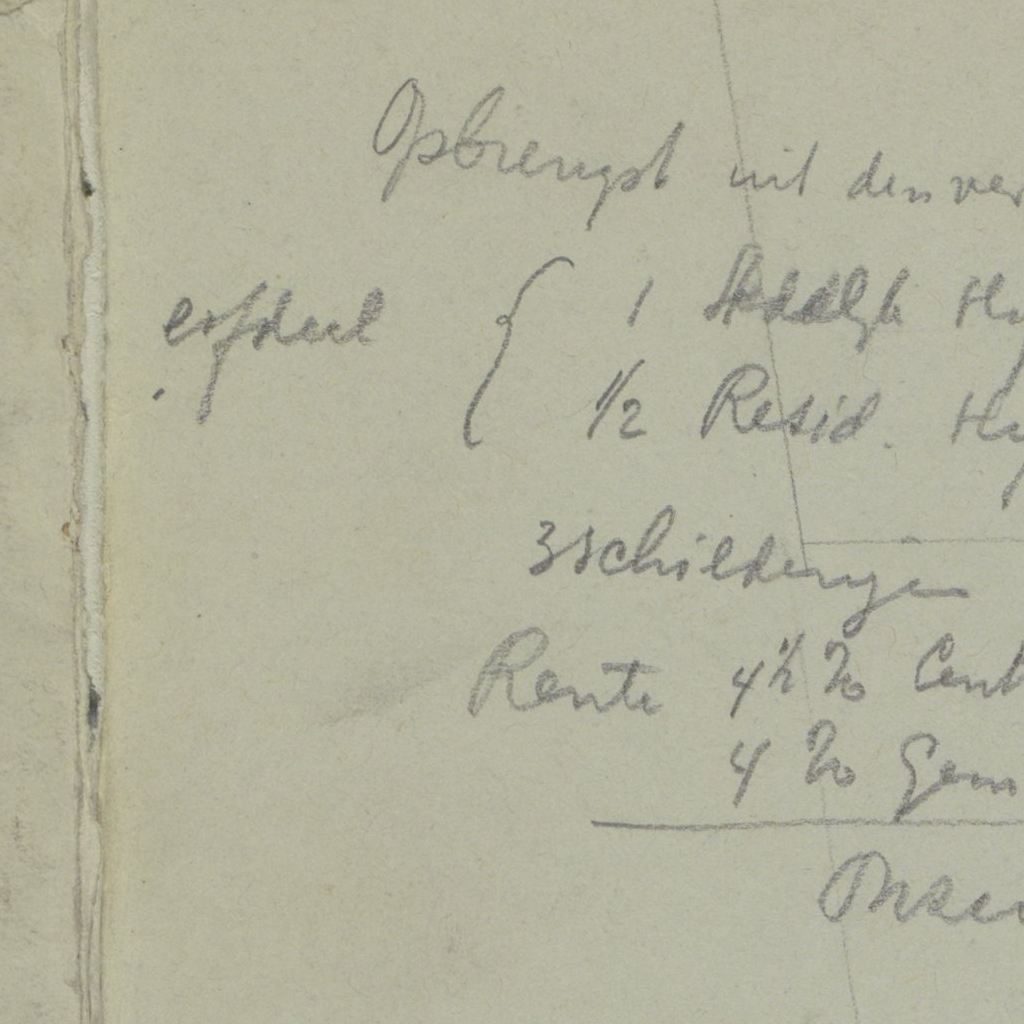 Opbrengst uit den ver
erfdeel { 1 Hy
1/2 Resid. Hy
3 schilderyen
Rente 4 1/2 % Cent
4 % Gem
Onder